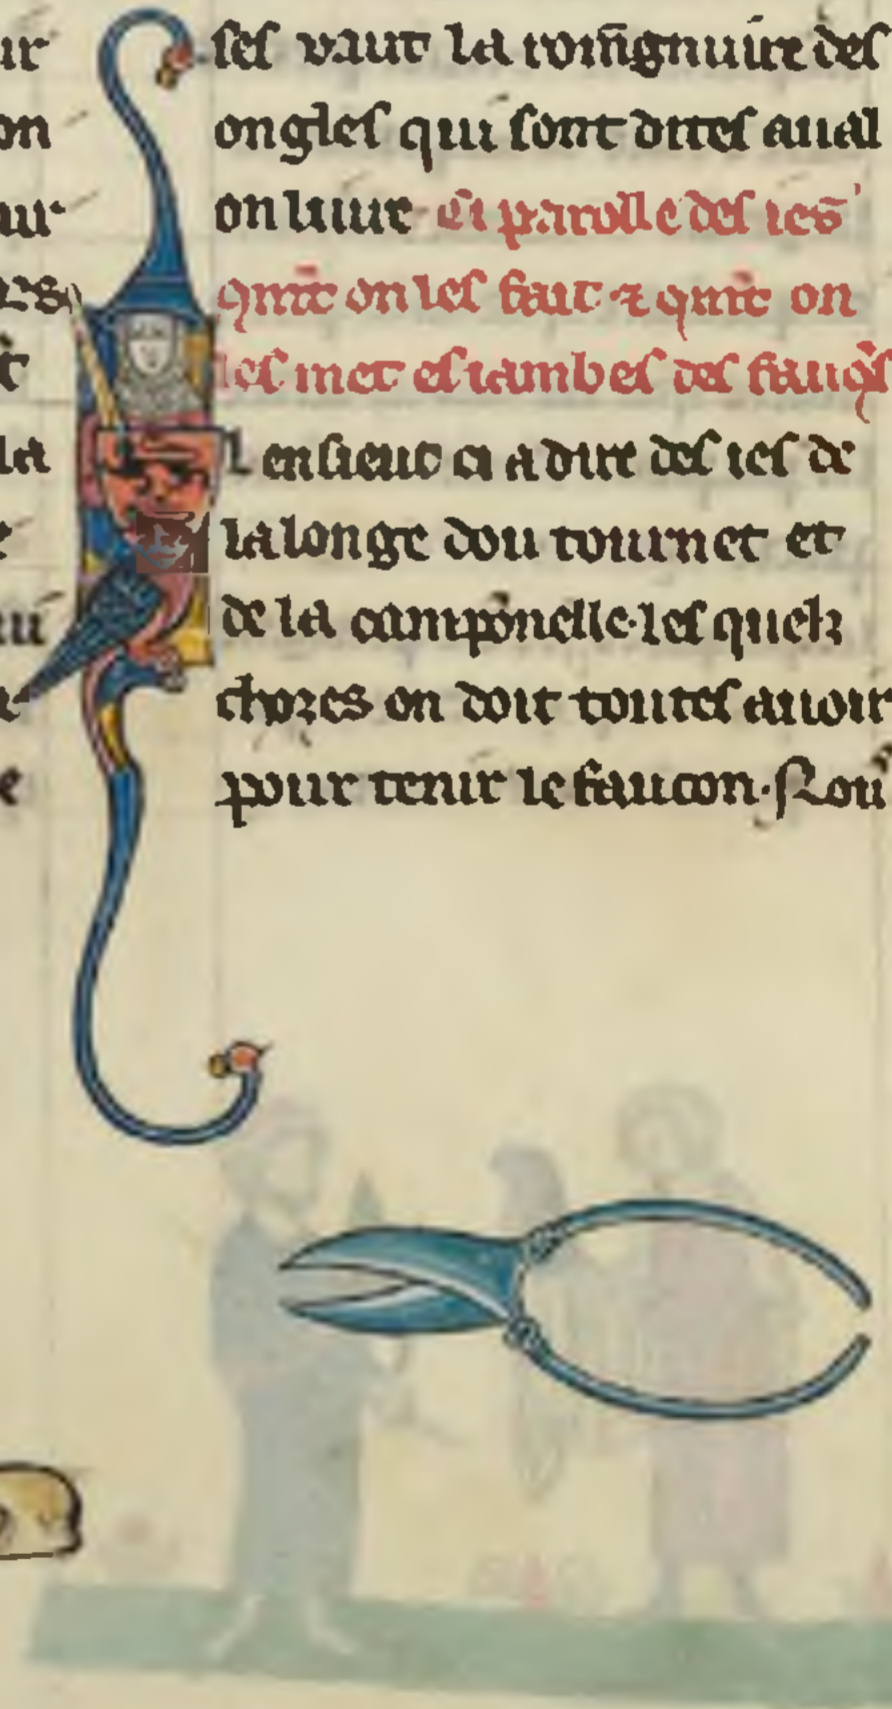 ſes vaut la rom̄gnuire des
ongles qui ſont dites aual
on liure Ci parolle des ies
qnt̄ on les fait ⁊ qnt̄ on
les met es iambes des
l enſieut ci a dire des ies de
la longe dou tournet et
de la les quelz
chozes on doit toutes auoir
pour tenir le faucon·